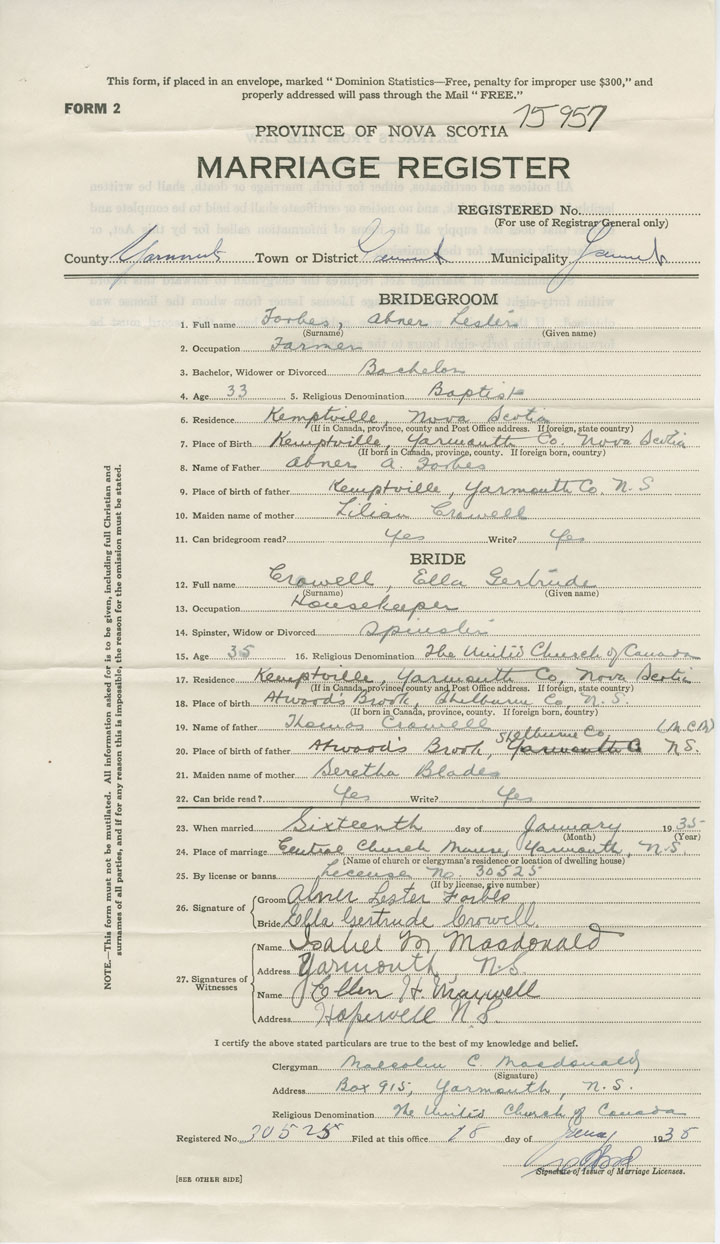 This form, if placed in an envelope, marked “ Dominion Statistics—Free, penalty for improper use $300,” and
properly addressed will pass through the Mail “ FREE.”
FORM 2
75957
PROVINCE OF NOVA SCOTIA
MARRIAGE REGISTER
REGISTERED No.
(For use of Registrar General only)
County Yarmouth Town or District Yarmouth Municipality Yarmouth
BRIDEGROOM
1. Full name Forbes, Abner Lester
(Surname) (Given name)
2. Occupation Farmer
3. Bachelor, Widower or Divorced Bachelor
4. Age 33 5. Religious Denomination Baptist
6. Residence Kemptville, Nova Scotia
(If in Canada, province, county and Post Office address. If foreign, state country)
7. Place of Birth Kemptville, Yarmouth Co. Nova Scotia
(If born in Canada, province, county. If foreign born, country)
8. Name of Father Abner A. Forbes
9. Place of birth of father Kemptville, Yarmouth Co, N. S
10. Maiden name of mother Lilian Crowell
11. Can bridegroom read? Yes Write? Yes
BRIDE
12. Full name Crowell, Ella Gertrude
(Surname) (Given name)
13. Occupation Housekeeper
14. Spinster, Widow or Divorced Spinster
15. Age 35 16. Religious Denomination The United Church of Canada
17. Residence Kemptville, Yarmouth Co, Nova Scotia
(If in Canada, province, county and Post Office address. If foreign, state country)
18. Place of birth Atwood's Brook, Shelburne Co, N. S.
(If born in Canada, province, county. If foreign born, country)
19. Name of father Thomas Crowell (M.C.M)
20. Place of birth of father Atwood's Brook, Shelburne Co, Yarmouth Co N.S.
21. Maiden name of mother Seretha Blades
22. Can bride read? Yes Write? Yes
23. When married Sixteenth day of January 1935
(Month) (Year)
24. Place of marriage Central Church Manse, Yarmouth, N.S
(Name of church or clergyman's residence or location of dwelling house)
25. By license or banns License No. 30525
(If by license, give number)
26. Signature of Groom Abner Lester Forbes
Bride Ella Gertrude Crowell.
27. Signatures of Witnesses
Name Isabel M Macdonald
Address Yarmouth, N.S.
Name Ellen H. Maxwell
Address Hopewell N.S.
I certify the above stated particulars are true to the best of my knowledge and belief.
Clergyman Malcolm C. Macdonald
(Signature)
Address Box 915, Yarmouth, N.S.
Religious Denomination The United Church of Canada
Registered No. 30525 Filed at this office 18 day of Jany 1935
Signature of Issuer of Marriage Licenses.
[SEE OTHER SIDE]
NOTE.—This form must not be mutilated. All information asked for is to be given, including full Christian and
surnames of all parties, and if for any reason this is impossible, the reason for the omission must be stated.